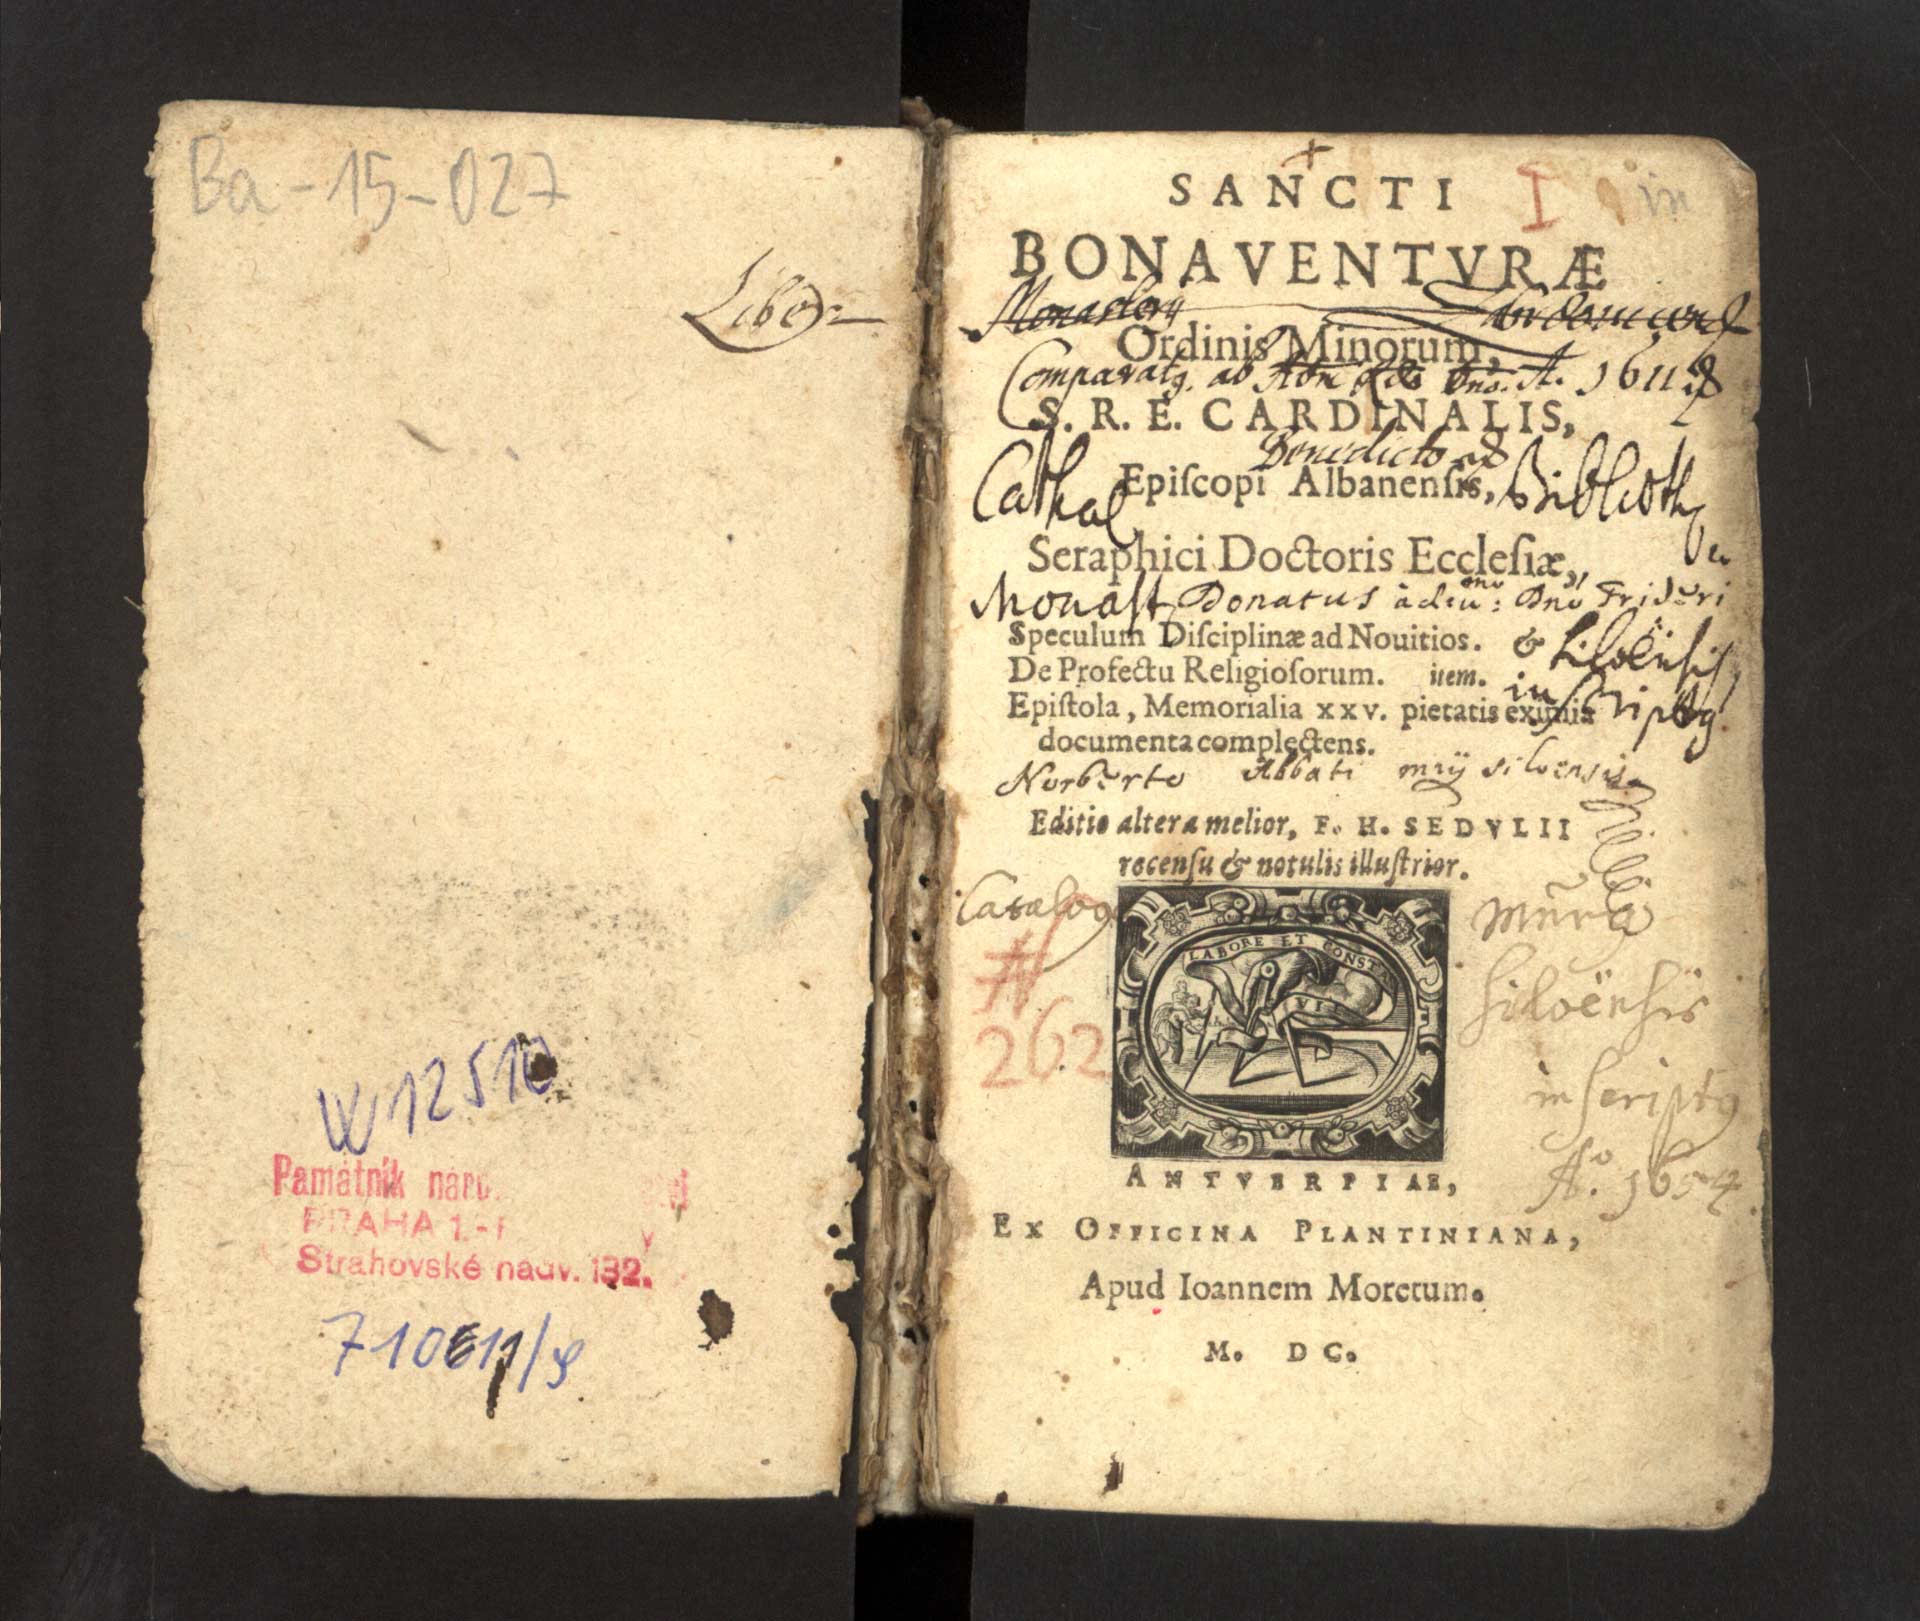 Ba-15-027
Liber
W 12510
Památník náro
PRAHA 1.-
Strahovské nádv. 132.
SANCTI
I
in
BONAVENTVRÆ
Monasterij
Ordinis Minorum,
Comparatg. ab Adm Rdo Dno. A. 1611
S. R. E. CARDINALIS,
Benedicto
Cathal
Epiſcopi Albanenſis,
Biblioth
Seraphici Doctoris Eccleſiæ,
Monast Donatus Frideri
Speculum Diſciplinæ ad Nouitios. &
Siloënsis
De Profectu Religioſorum. item.
inscriptg
Epiſtola, Memorialia XXV. pietatis eximia
documenta complectens.
Norberto Abbati mrij siloensis
Editio altera melior, F. H. SEDVLII
recenſu & notulis illuſtrior.
Catalog
262
LABORE ET CONSTA
Siloënsis
inscriptg
Ao. 1654
ANTVERPIAE,
EX OFFICINA PLANTINIANA,
Apud Ioannem Moretum.
M. DC.